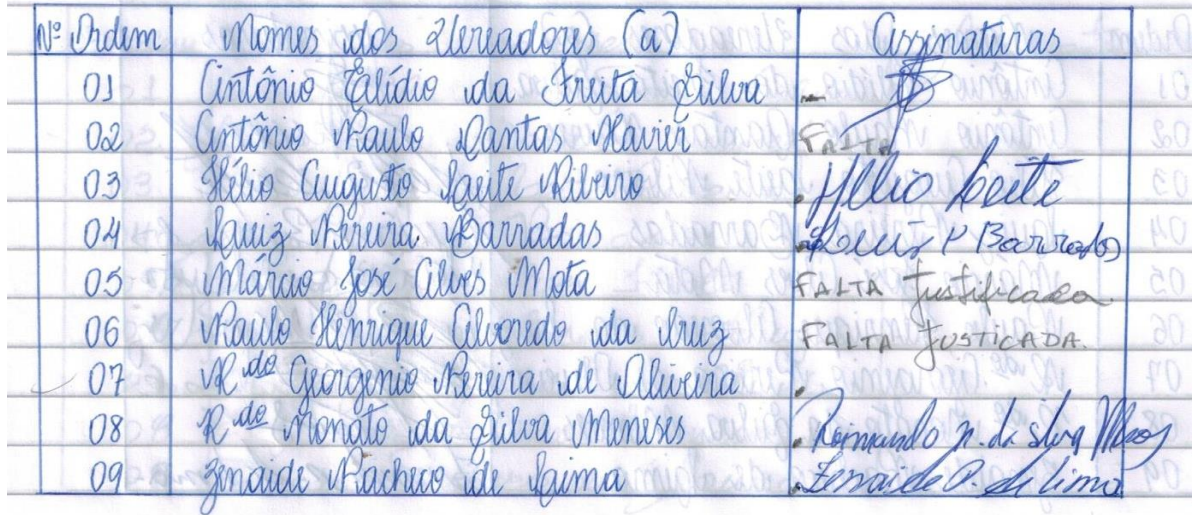 Nº Ordem Nomes dos Vereadores (a) Assinaturas
01 Antônio Elídio da Freita Silva
02 Antônio Paulo Dantas Xavier FALTA
03 Hélio Augusto Leite Ribeiro Hélio Leite
04 Luiz Pereira Barradas Luis P Barradas
05 Márcio José Alves Mota FALTA Justificada
06 Paulo Henrique Alvoredo da Cruz FALTA JUSTICADA.
07 Rdo Georgenio Pereira de Oliveira
08 Rdo Nonato da Silva Meneses Raimundo N. da Silva
09 Zenaide Pacheco de Lima Zenaide P. de Lima